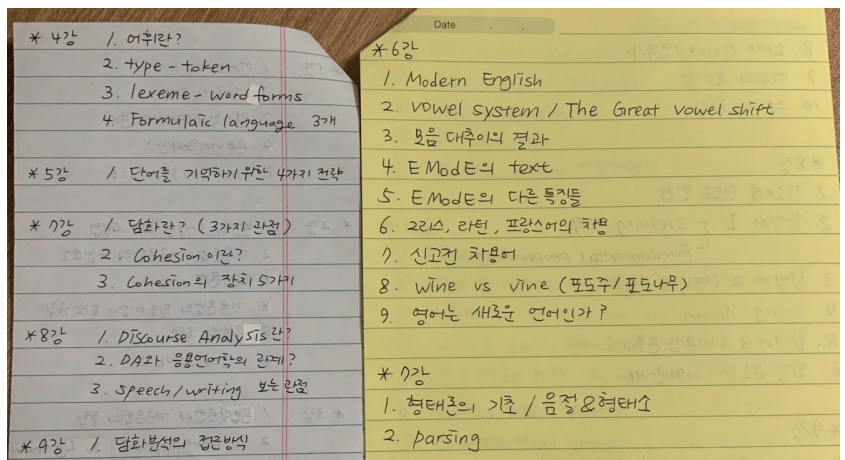 * 4강 1. 어휘란?
2. type - token
3. lexeme - word forms
4. Formulaic language 3개
* 5강 1. 단어를 기억하기 위한 4가지 전략
* 7강 1. 담화란? (3가지 관점)
2. Cohesion이란?
3. Cohesion의 장치 5가지
* 8강 1. Discourse Analysis란?
2. DA와 응용언어학의 관계?
3. speech/writing 보는 관점
* 9강 1. 담화분석의 접근방식
Date . .
* 6강
1. Modern English
2. vowel system / The Great vowel shift
3. 모음 대추이의 결과
4. EModE의 text
5. EModE의 다른 특징들
6. 그리스, 라틴, 프랑스어의 차용
7. 신고전 차용어
8. wine vs vine (포도주/포도나무)
9. 영어는 새로운 언어인가?
* 7강
1. 형태론의 기초 / 음절&형태소
2. parsing